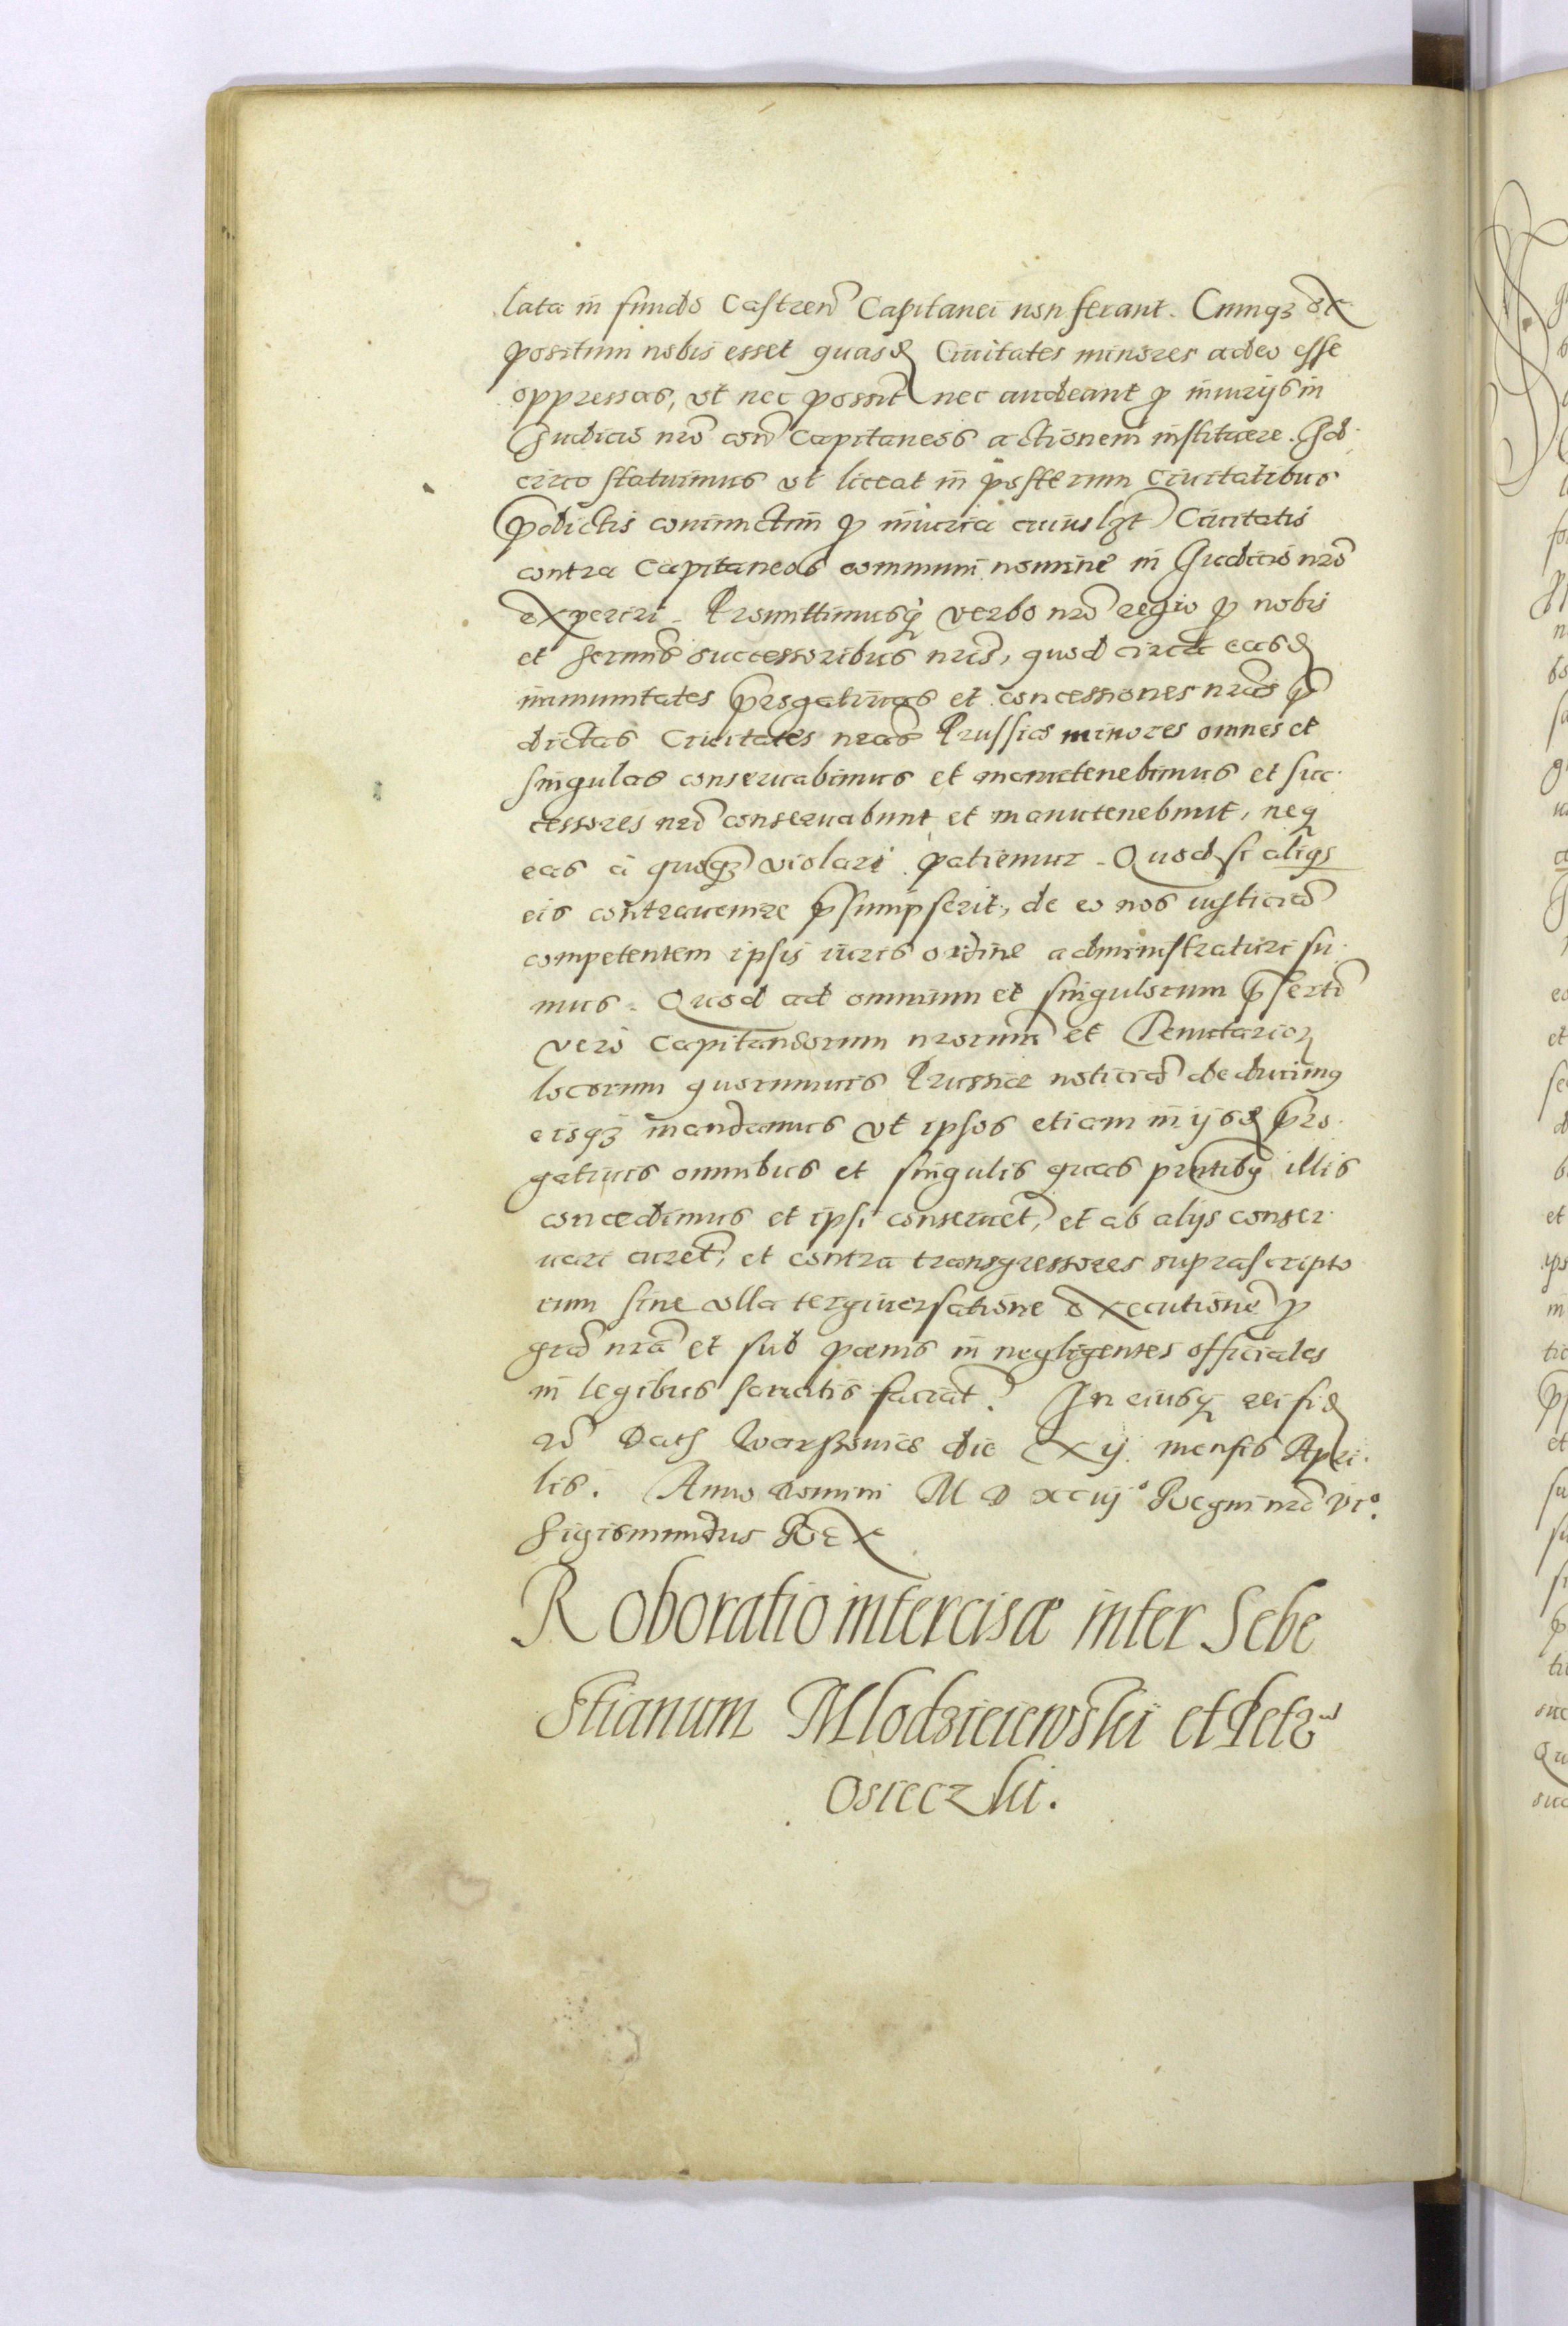 lata in fundo Castren̄ Capitanei non ferant. Cumqꝫ ex
positum nobis esset quasd Ciuitates minores adeo esse
oppressas, vt nec possint nec audeant ꝓ iniurijs in
Iudicio nr̄o con̄ Capitaneos actionem instituere. Id
circo statuimus vt liceat in posterum Ciuitatibus
p̄dictis coniunctim ꝓ iniuria cuiuslꝫt Ciuitatis
contra Capitaneos communi nomine in Iudicio nr̄o
experiri. Promittimusq̨ verbo nr̄o regio ꝓ nobis
et serenis̄ successoribus nr̄is, quod circa easd
immunitates p̄rogatiuas et concessiones nr̄as p̄
dictas Ciuitates nr̄as Prussiae minores omnes et
singulas conseruabimus et manutenebimus et suc
cessores nr̄i conseruabunt et manutenebunt, neq̨
eas a quoqꝫ violari patiemur. Quod si aliqs
eis contrauenire p̄sumpserit, de eo nos iusticiā
competentem ipsis iuris ordine administraturi su
mus. Quod ad omnium et singulorum p̄serti
vero Capitaneorum nrorum et Tenutarioꝝ
locorum quorumuis Prussiae noticiā deducimꝰ
eisqꝫ mandamus vt ipsos etiam in ijsd p̄ro
gatiuis omnibus et singulis quas pntibꝰ illis
concedimus et ipsi conseruēt, et ab alijs conser
uari curēt, et contra transgressores suprascripto
rum sine vlla tergiuersatione executionē ꝓ
grā nr̄a et sub paenis in negligentes officiales
in legibus sancitis faciāt. In cuiusq̨ rei fid
rē Datꝭ Warssouiae die xij mensis Apri
lis. Anno Domini MDxciijº Regni nr̄i viº.
Sigismundus Rex
Roboratio intercisæ inter Sebe
stianum Mlodzieiewski et Petrū
Osieczki.